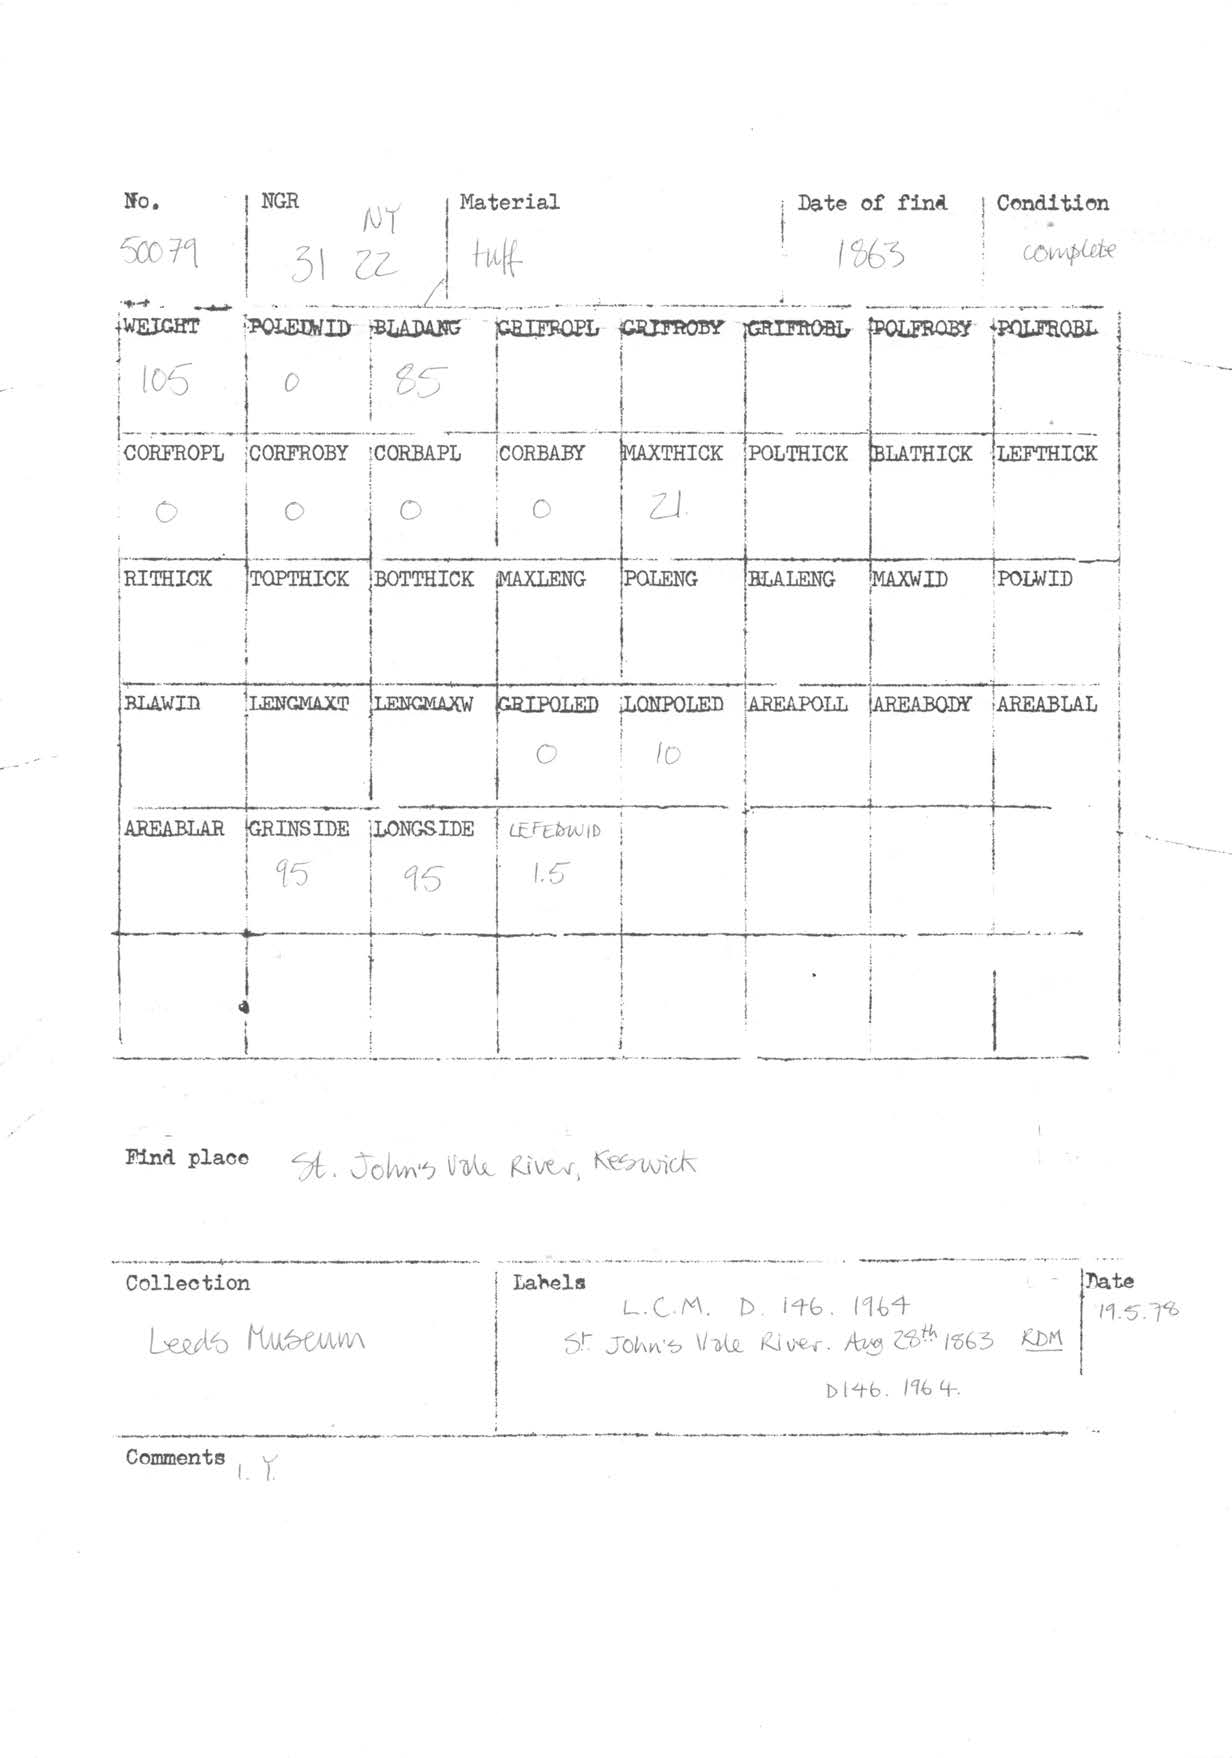 No. NGR Material Date of find Condition
NY
50079 31 22 tuff 1863 complete
WEIGHT POLEDWID BLADANG GRIFROPL GRIFROBY GRIFROBL POLFROBY POLFROBL
105 0 85
CORFROPL CORFROBY CORBAPL CORBABY MAXTHICK POLTHICK BLATHICK LEFTHICK
0 0 0 0 21
RITHICK TOPTHICK BOTTHICK MAXLENG POLENG BLALENG MAXWID POLWID
BLAWID LENGMAXT LENGMAXW GRIPOLED LONPOLED AREAPOLL AREABODY AREABLAL
0 10
AREABLAR GRINSIDE LONGSIDE LEFEDWID
95 95 1.5
Find place St. John's Vale River, Keswick
Collection Labels Date
L.C.M. D. 146. 1964 19.5.78
Leeds Museum St. John's Vale River. Aug 28th 1863 RDM
D146. 1964.
Comments 1. Y.